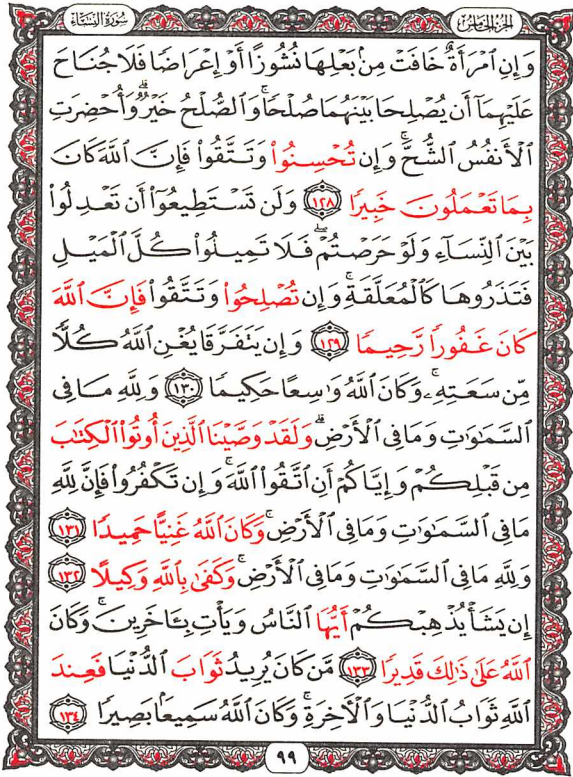 سُورَةُ النِّسَاءِ
الجُزْءُ الخَامِسُ
وَإِنِ ٱمْرَأَةٌ خَافَتْ مِنۢ بَعْلِهَا نُشُوزًا أَوْ إِعْرَاضًا فَلَا جُنَاحَ
عَلَيْهِمَآ أَن يُصْلِحَا بَيْنَهُمَا صُلْحًاۚ وَٱلصُّلْحُ خَيْرٌۗ وَأُحْضِرَتِ
ٱلْأَنفُسُ ٱلشُّحَّۚ وَإِن تُحْسِنُوا۟ وَتَتَّقُوا۟ فَإِنَّ ٱللَّهَ كَانَ
بِمَا تَعْمَلُونَ خَبِيرًا ١٢٨ وَلَن تَسْتَطِيعُوٓا۟ أَن تَعْدِلُوا۟
بَيْنَ ٱلنِّسَآءِ وَلَوْ حَرَصْتُمْۖ فَلَا تَمِيلُوا۟ كُلَّ ٱلْمَيْلِ
فَتَذَرُوهَا كَٱلْمُعَلَّقَةِۚ وَإِن تُصْلِحُوا۟ وَتَتَّقُوا۟ فَإِنَّ ٱللَّهَ
كَانَ غَفُورًا رَّحِيمًا ١٢٩ وَإِن يَتَفَرَّقَا يُغْنِ ٱللَّهُ كُلًّا
مِّن سَعَتِهِۦۚ وَكَانَ ٱللَّهُ وَٰسِعًا حَكِيمًا ١٣٠ وَلِلَّهِ مَا فِى
ٱلسَّمَٰوَٰتِ وَمَا فِى ٱلْأَرْضِۗ وَلَقَدْ وَصَّيْنَا ٱلَّذِينَ أُوتُوا۟ ٱلْكِتَٰبَ
مِن قَبْلِكُمْ وَإِيَّاكُمْ أَنِ ٱتَّقُوا۟ ٱللَّهَۚ وَإِن تَكْفُرُوا۟ فَإِنَّ لِلَّهِ
مَا فِى ٱلسَّمَٰوَٰتِ وَمَا فِى ٱلْأَرْضِۚ وَكَانَ ٱللَّهُ غَنِيًّا حَمِيدًا ١٣١
وَلِلَّهِ مَا فِى ٱلسَّمَٰوَٰتِ وَمَا فِى ٱلْأَرْضِۚ وَكَفَىٰ بِٱللَّهِ وَكِيلًا ١٣٢
إِن يَشَأْ يُذْهِبْكُمْ أَيُّهَا ٱلنَّاسُ وَيَأْتِ بِـَٔاخَرِينَۚ وَكَانَ
ٱللَّهُ عَلَىٰ ذَٰلِكَ قَدِيرًا ١٣٣ مَّن كَانَ يُرِيدُ ثَوَابَ ٱلدُّنْيَا فَعِندَ
ٱللَّهِ ثَوَابُ ٱلدُّنْيَا وَٱلْءَاخِرَةِۚ وَكَانَ ٱللَّهُ سَمِيعًۢا بَصِيرًا ١٣٤
٩٩